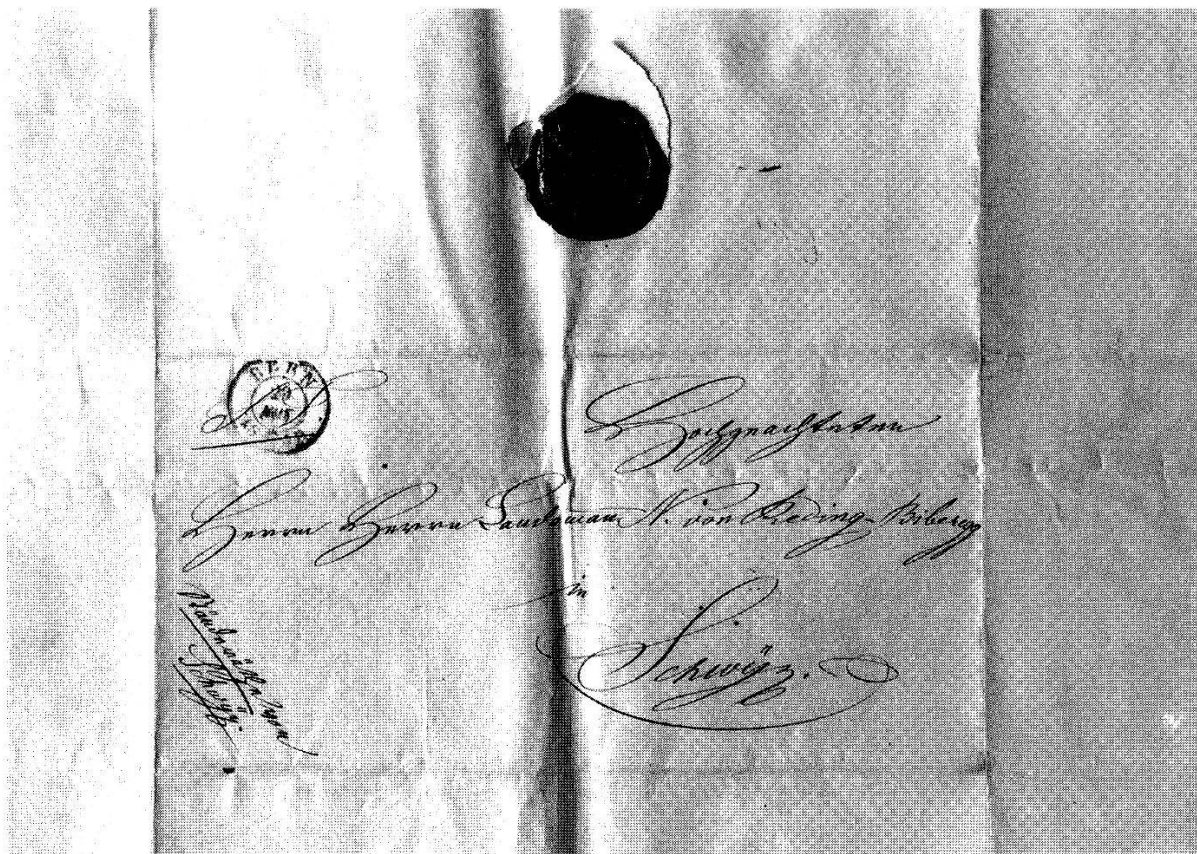 BERN
Hochgeachteten
Herrn Herrn Landaman N. von Reding-Biberegg
in
Schwÿz.
Schwÿz.